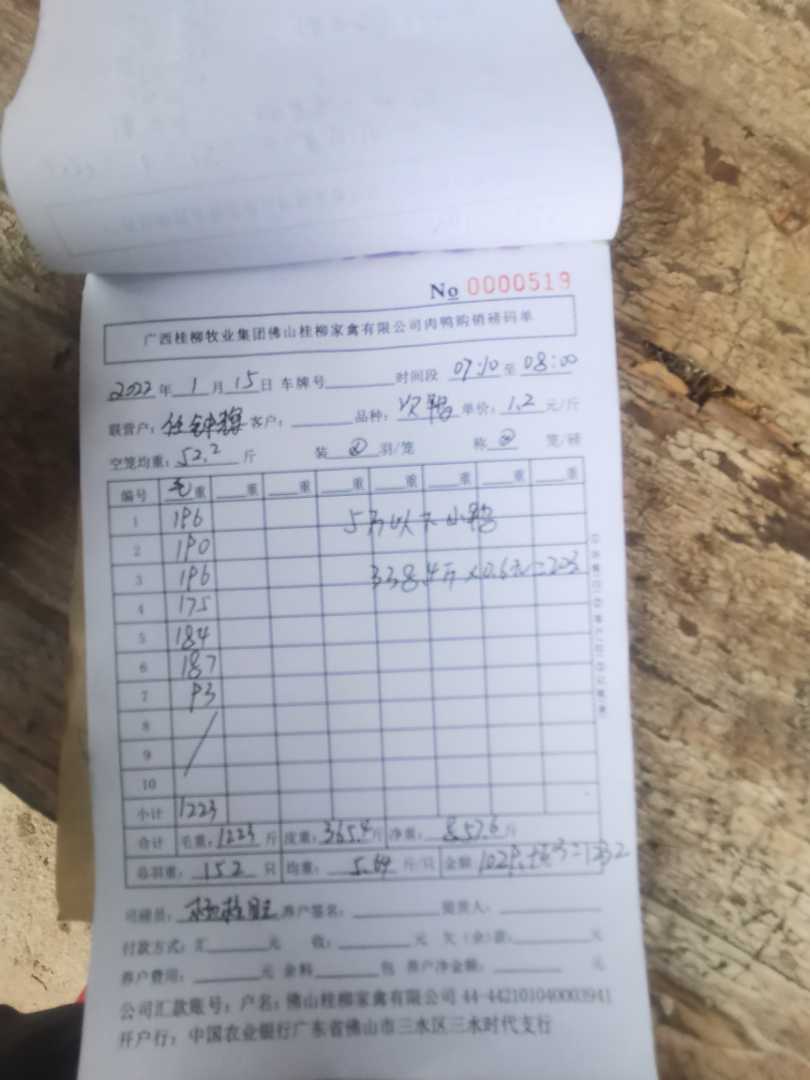 No 0000519
广西桂柳牧业集团佛山桂柳家禽有限公司肉鸭购销磅码单
2022 年 1 月 15 日 车牌号 时间段 07:10 至 08:00
联营户: 任钟 客户: 品种: 鸭 单价: 1.2 元/斤
空笼均重: 52.2 斤 装 ② 羽/笼 称 ② 笼/磅
编号 毛重 重 重 重 重 重 重 重
1 196 5斤以下小鸭
2 190
3 196 338.4斤×0.6元=203
4 175
5 184
6 187
7 93
8
9
10
小计 1223
合计 毛重: 1223 斤 皮重: 365.4 斤 净重: 857.6 斤
总羽重: 152 只 均重: 5.64 斤/只 金额 1029.+203=1232
司磅员: 养户签名: 提货人:
付款方式: 汇 元 收: 元 欠(余)款: 元
养户费用: 元 余料 包 养户净金额: 元
公司汇款账号: 户名: 佛山桂柳家禽有限公司 44-442101040003941
开户行: 中国农业银行广东省佛山市三水区三水时代支行